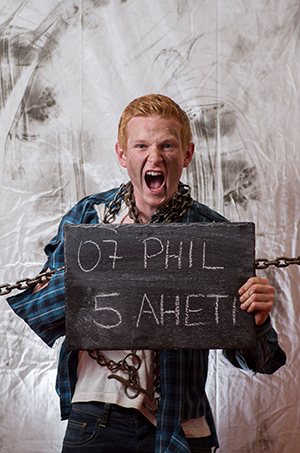 07 PHIL
5 AHETI